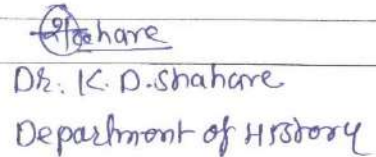 Dr. K. D. Shahare
Department of History